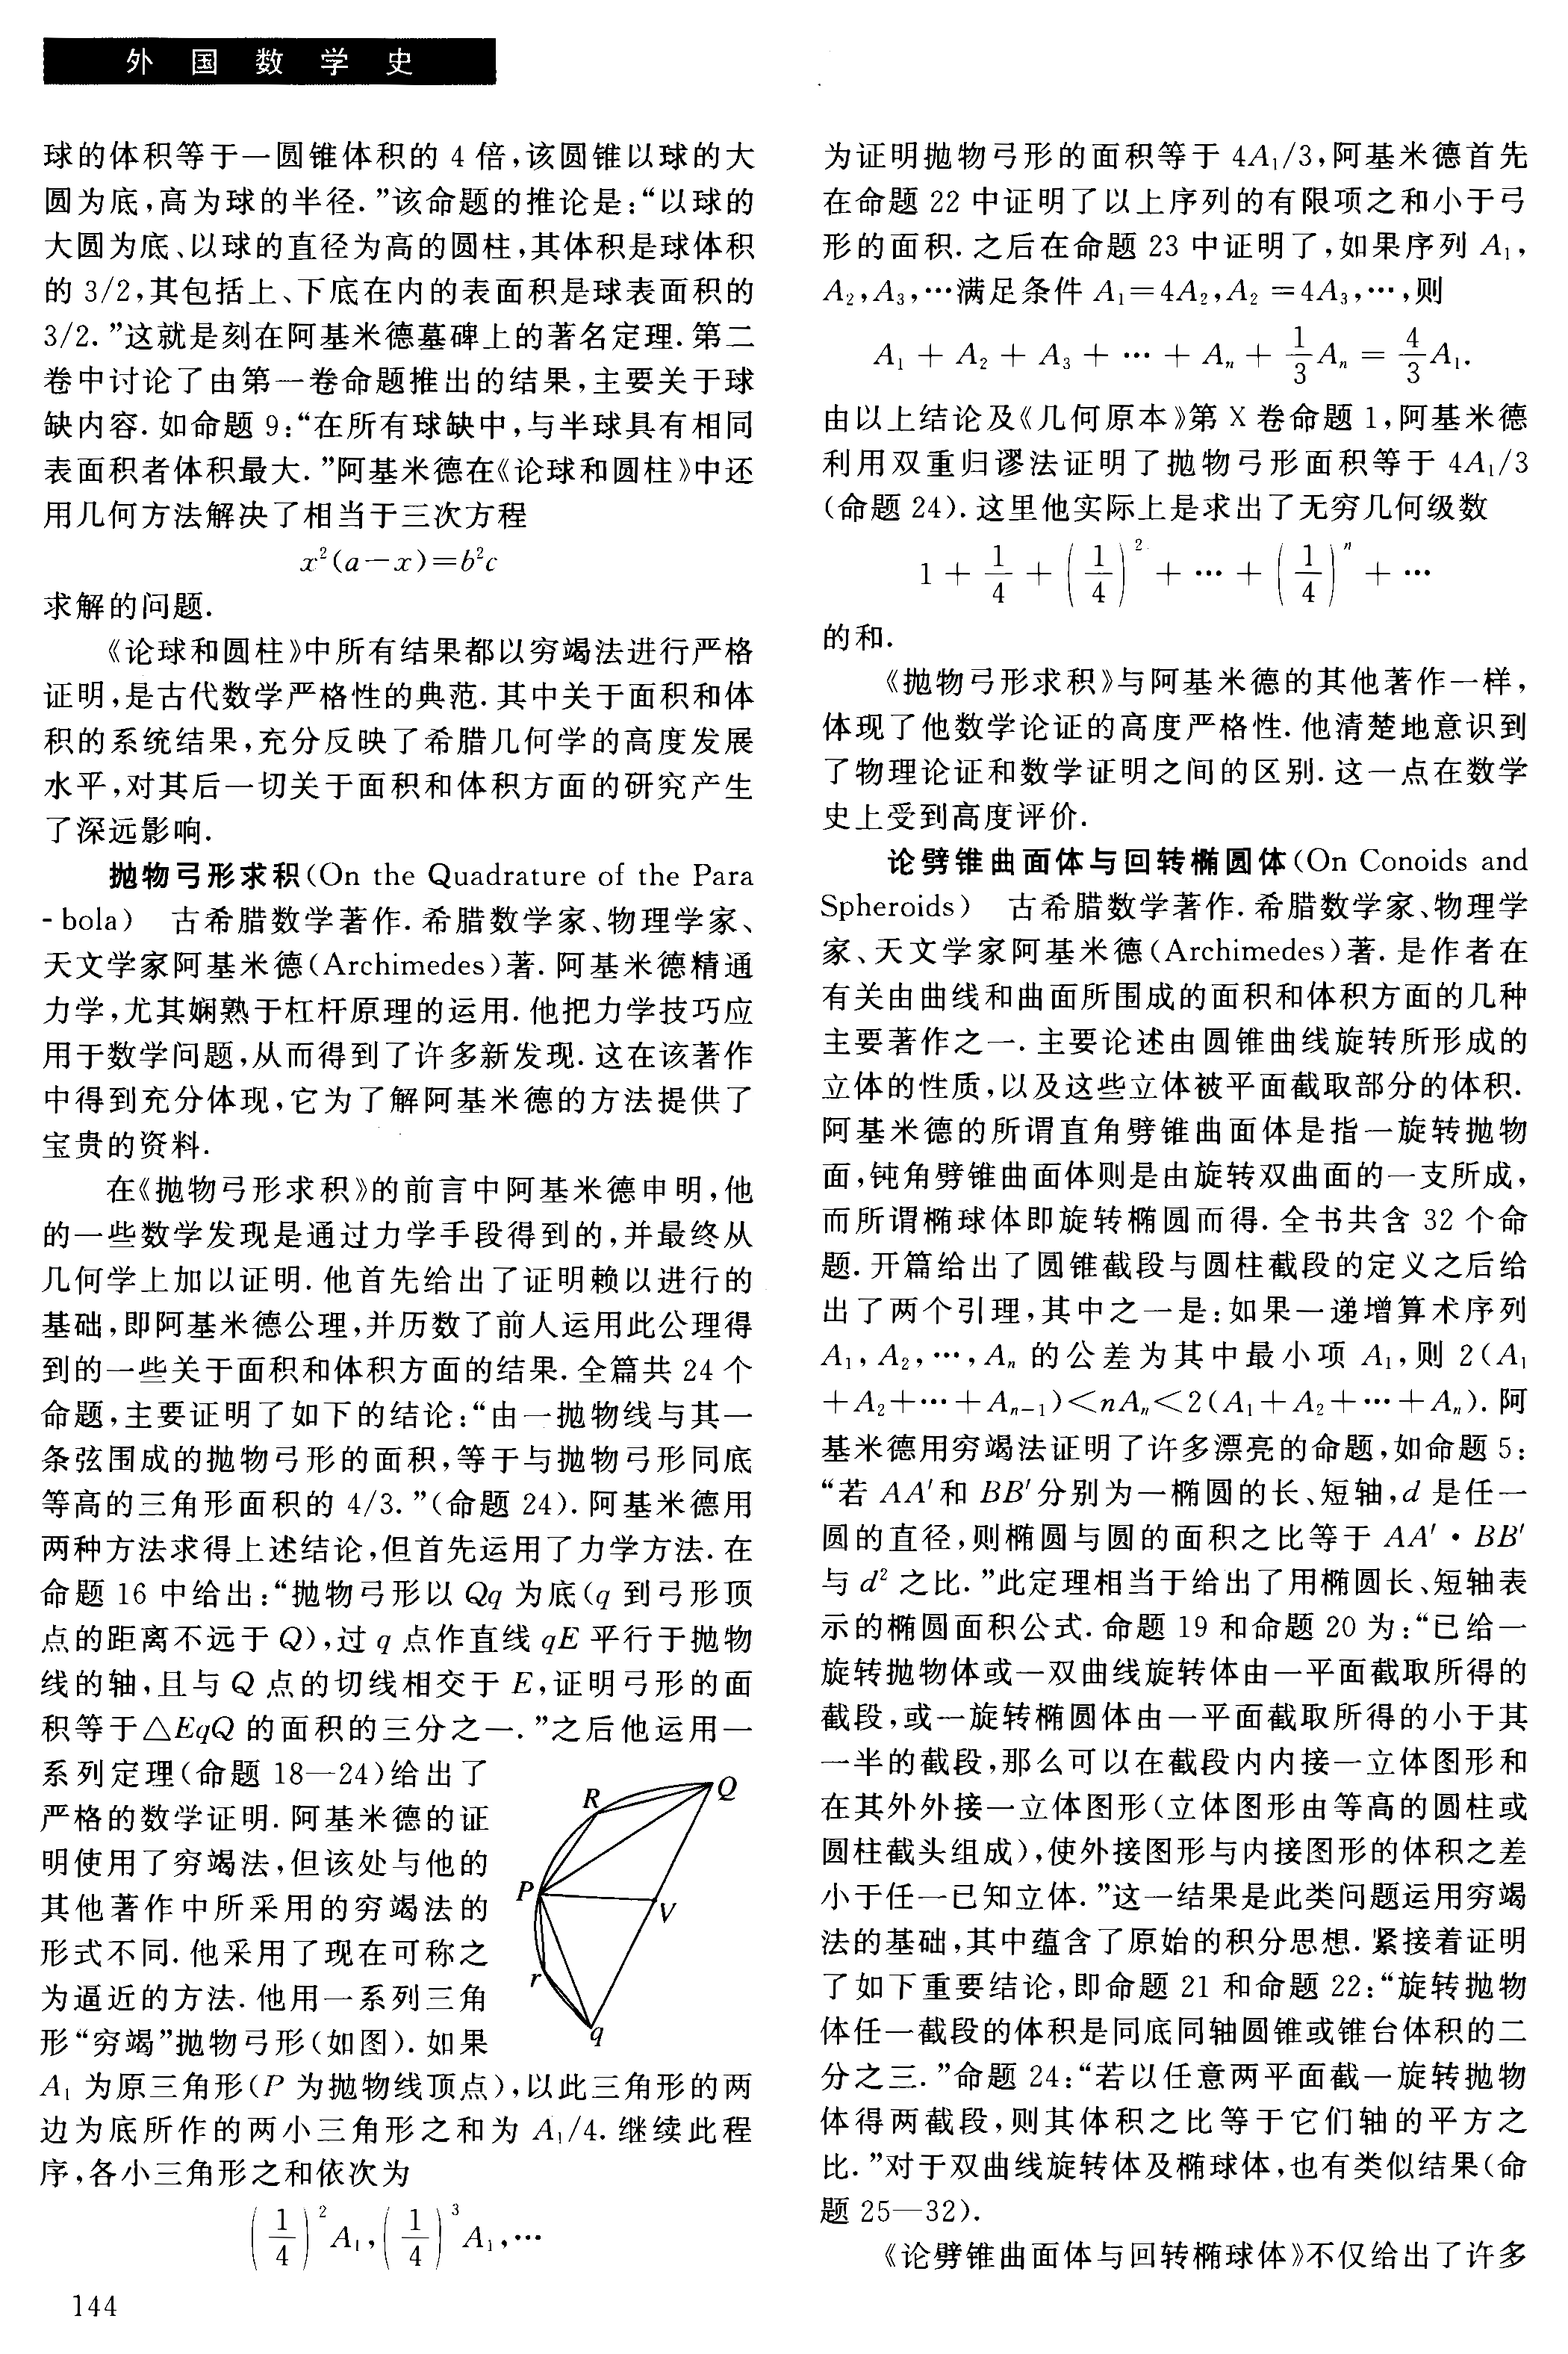 外国数学史
球的体积等于一圆锥体积的 4 倍,该圆锥以球的大
圆为底,高为球的半径.”该命题的推论是:“以球的
大圆为底、以球的直径为高的圆柱,其体积是球体积
的 3/2,其包括上、下底在内的表面积是球表面积的
3/2.”这就是刻在阿基米德墓碑上的著名定理.第二
卷中讨论了由第一卷命题推出的结果,主要关于球
缺内容.如命题 9:“在所有球缺中,与半球具有相同
表面积者体积最大.”阿基米德在《论球和圆柱》中还
用几何方法解决了相当于三次方程
x²(a－x)＝b²c
求解的问题.
《论球和圆柱》中所有结果都以穷竭法进行严格
证明,是古代数学严格性的典范.其中关于面积和体
积的系统结果,充分反映了希腊几何学的高度发展
水平,对其后一切关于面积和体积方面的研究产生
了深远影响.
抛物弓形求积(On the Quadrature of the Para
-bola) 古希腊数学著作.希腊数学家、物理学家、
天文学家阿基米德(Archimedes)著.阿基米德精通
力学,尤其娴熟于杠杆原理的运用.他把力学技巧应
用于数学问题,从而得到了许多新发现.这在该著作
中得到充分体现,它为了解阿基米德的方法提供了
宝贵的资料.
在《抛物弓形求积》的前言中阿基米德申明,他
的一些数学发现是通过力学手段得到的,并最终从
几何学上加以证明.他首先给出了证明赖以进行的
基础,即阿基米德公理,并历数了前人运用此公理得
到的一些关于面积和体积方面的结果.全篇共 24 个
命题,主要证明了如下的结论:“由一抛物线与其一
条弦围成的抛物弓形的面积,等于与抛物弓形同底
等高的三角形面积的 4/3.”(命题 24).阿基米德用
两种方法求得上述结论,但首先运用了力学方法.在
命题 16 中给出:“抛物弓形以 Qq 为底(q 到弓形顶
点的距离不远于 Q),过 q 点作直线 qE 平行于抛物
线的轴,且与 Q 点的切线相交于 E,证明弓形的面
积等于△EqQ 的面积的三分之一.”之后他运用一
系列定理(命题 18—24)给出了
严格的数学证明.阿基米德的证
明使用了穷竭法,但该处与他的
其他著作中所采用的穷竭法的
形式不同.他采用了现在可称之
为逼近的方法.他用一系列三角
形“穷竭”抛物弓形(如图).如果
R
Q
P
V
r
q
A₁ 为原三角形(P 为抛物线顶点),以此三角形的两
边为底所作的两小三角形之和为 A₁/4.继续此程
序,各小三角形之和依次为
(1/4)²A₁,(1/4)³A₁,…
144
为证明抛物弓形的面积等于 4A₁/3,阿基米德首先
在命题 22 中证明了以上序列的有限项之和小于弓
形的面积.之后在命题 23 中证明了,如果序列 A₁,
A₂,A₃,…满足条件 A₁＝4A₂,A₂＝4A₃,…,则
A₁ + A₂ + A₃ + … + Aₙ + 1/3 Aₙ = 4/3 A₁.
由以上结论及《几何原本》第 X 卷命题 1,阿基米德
利用双重归谬法证明了抛物弓形面积等于 4A₁/3
(命题 24).这里他实际上是求出了无穷几何级数
1 + 1/4 + (1/4)² + … + (1/4)ⁿ + …
的和.
《抛物弓形求积》与阿基米德的其他著作一样,
体现了他数学论证的高度严格性.他清楚地意识到
了物理论证和数学证明之间的区别.这一点在数学
史上受到高度评价.
论劈锥曲面体与回转椭圆体(On Conoids and
Spheroids) 古希腊数学著作.希腊数学家、物理学
家、天文学家阿基米德(Archimedes)著.是作者在
有关由曲线和曲面所围成的面积和体积方面的几种
主要著作之一.主要论述由圆锥曲线旋转所形成的
立体的性质,以及这些立体被平面截取部分的体积.
阿基米德的所谓直角劈锥曲面体是指一旋转抛物
面,钝角劈锥曲面体则是由旋转双曲面的一支所成,
而所谓椭球体即旋转椭圆而得.全书共含 32 个命
题.开篇给出了圆锥截段与圆柱截段的定义之后给
出了两个引理,其中之一是:如果一递增算术序列
A₁,A₂,…,Aₙ 的公差为其中最小项 A₁,则 2(A₁
＋A₂＋…＋Aₙ₋₁)＜nAₙ＜2(A₁＋A₂＋…＋Aₙ).阿
基米德用穷竭法证明了许多漂亮的命题,如命题 5:
“若 AA′和 BB′分别为一椭圆的长、短轴,d 是任一
圆的直径,则椭圆与圆的面积之比等于 AA′·BB′
与 d² 之比.”此定理相当于给出了用椭圆长、短轴表
示的椭圆面积公式.命题 19 和命题 20 为:“已给一
旋转抛物体或一双曲线旋转体由一平面截取所得的
截段,或一旋转椭圆体由一平面截取所得的小于其
一半的截段,那么可以在截段内内接一立体图形和
在其外外接一立体图形(立体图形由等高的圆柱或
圆柱截头组成),使外接图形与内接图形的体积之差
小于任一已知立体.”这一结果是此类问题运用穷竭
法的基础,其中蕴含了原始的积分思想.紧接着证明
了如下重要结论,即命题 21 和命题 22:“旋转抛物
体任一截段的体积是同底同轴圆锥或锥台体积的二
分之三.”命题 24:“若以任意两平面截一旋转抛物
体得两截段,则其体积之比等于它们轴的平方之
比.”对于双曲线旋转体及椭球体,也有类似结果(命
题 25—32).
《论劈锥曲面体与回转椭球体》不仅给出了许多